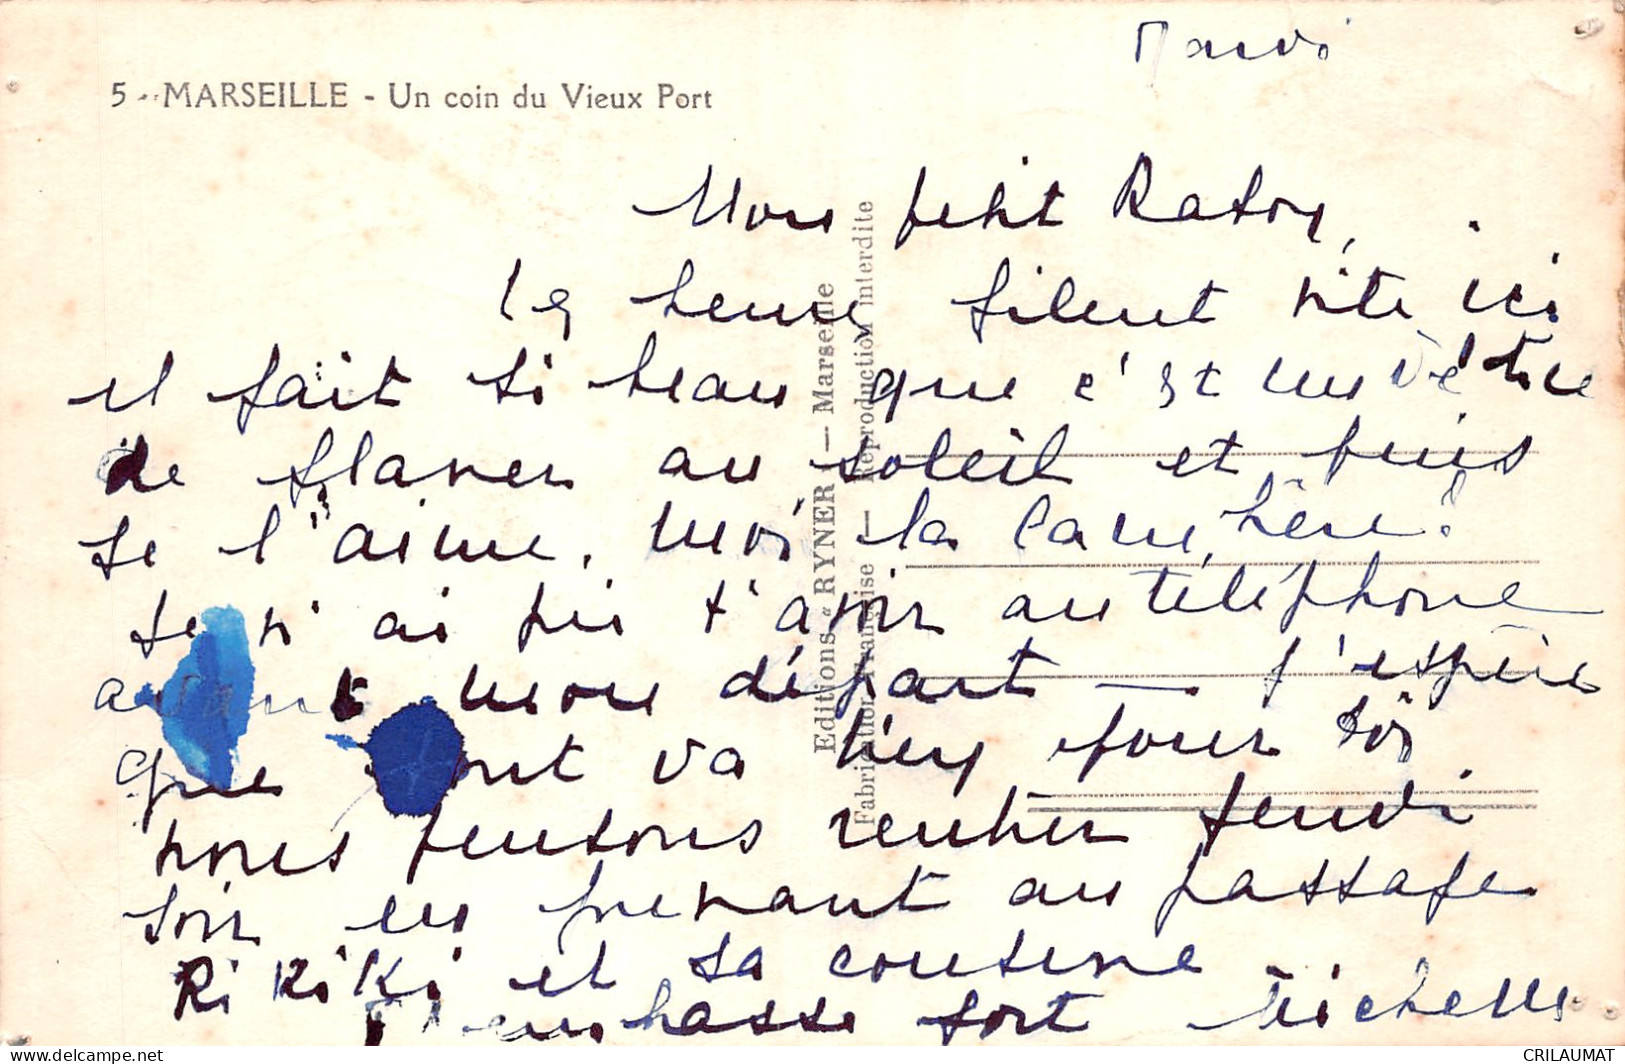 Mardi
5 - MARSEILLE - Un coin du Vieux Port
Mon petit Raton,
les heures filent vite ici
il fait si beau que c'est un délice
de flaner au soleil et puis
je l'aime, moi la Cannebière!
Je n'ai pu t'avoir au téléphone
avant mon départ — j'espère
que tout va bien pour toi
nous pensons rentrer jeudi
soir en prenant au passage
Rikiki et sa cousine
T'embrasse fort Michelle
Editions "RYNER" — Marseille
Fabrication Française — Reproduction interdite
CRILAUMAT